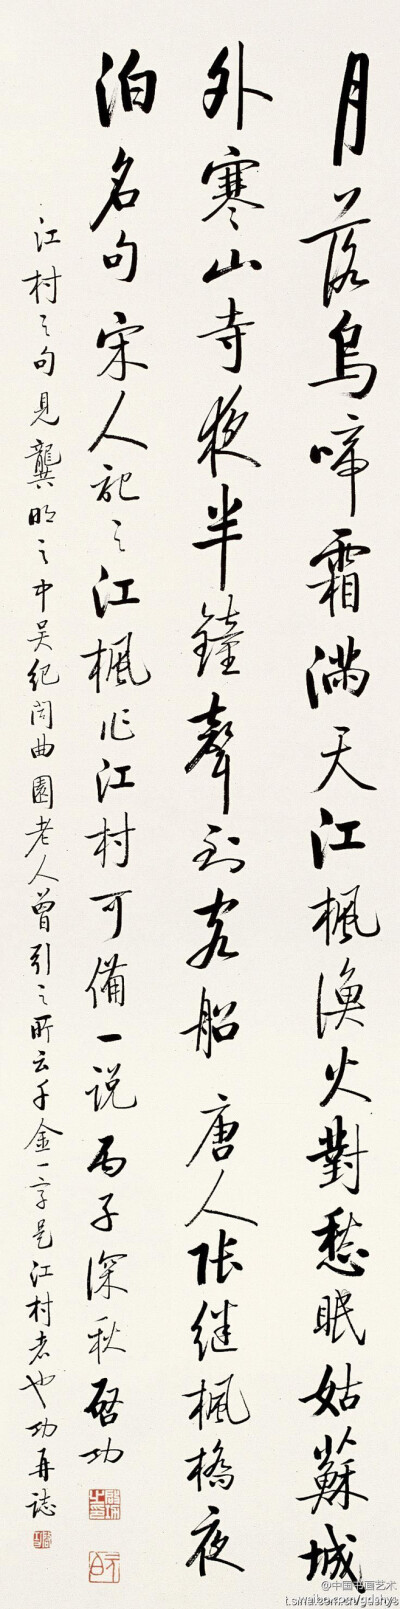 月落烏啼霜滿天江楓漁火對愁眠姑蘇城
外寒山寺夜半鐘聲到客船唐人張繼楓橋夜
泊名句宋人記之江楓作江村可備一說丙子深秋啓功
江村之句見龔明之中吳紀聞曲園老人曾引之所云千金一字是江村者也功再誌
@中国书画艺术